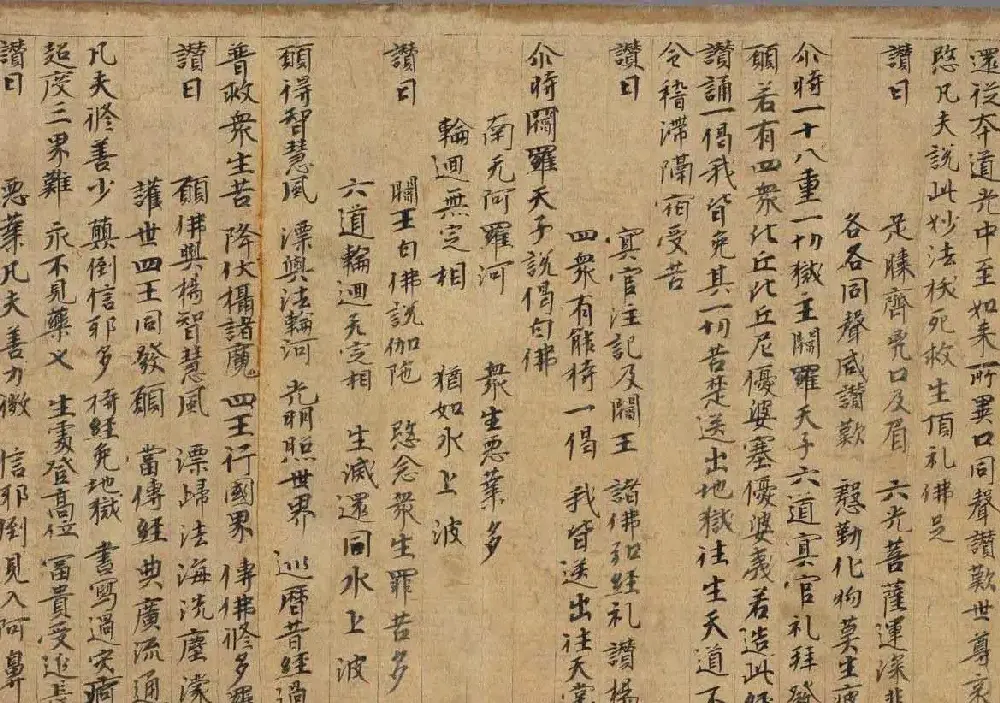 還從本道光中至如來所異口同聲讚歎世尊哀
愍凡夫說此妙法拔死救生頂礼佛足
讚曰
足膝齊兇口及眉 六光菩薩運深悲
各各同聲咸讚歎 慇勤化物莫生疲
尒時一十八重一切獄主閻羅天子六道冥官礼拜發
願若有四衆比丘比丘尼優婆塞優婆夷若造此經
讚誦一偈我皆免其一切苦楚送出地獄往生天道不
令稽滯隔宿受苦
讚曰
冥官注記及閻王 諸佛弘經礼讚揚
四衆有能持一偈 我皆送出往天堂
尒時閻羅天子說偈白佛
南无阿羅河 衆生惡業多
輪迴無定相 猶如水上波
讚曰
閻王白佛說伽陁 愍念衆生罪苦多
六道輪迴无定相 生滅還同水上波
願得智慧風 漂與法輪河 光明照世界 巡曆昔經過
普救衆生苦 降伏攝諸魔 四王行國界 傳佛修多羅
讚曰
願佛興揚智慧風 漂歸法海洗塵濛
護世四王同發願 當傳經典廣流通
凡夫修善少 顛倒信邪多 持經免地獄 書寫過灾痾
超度三界難 永不見藥叉 生處登高位 冨貴受延長
讚曰
惡業凡夫善力微 信邪倒見入阿鼻